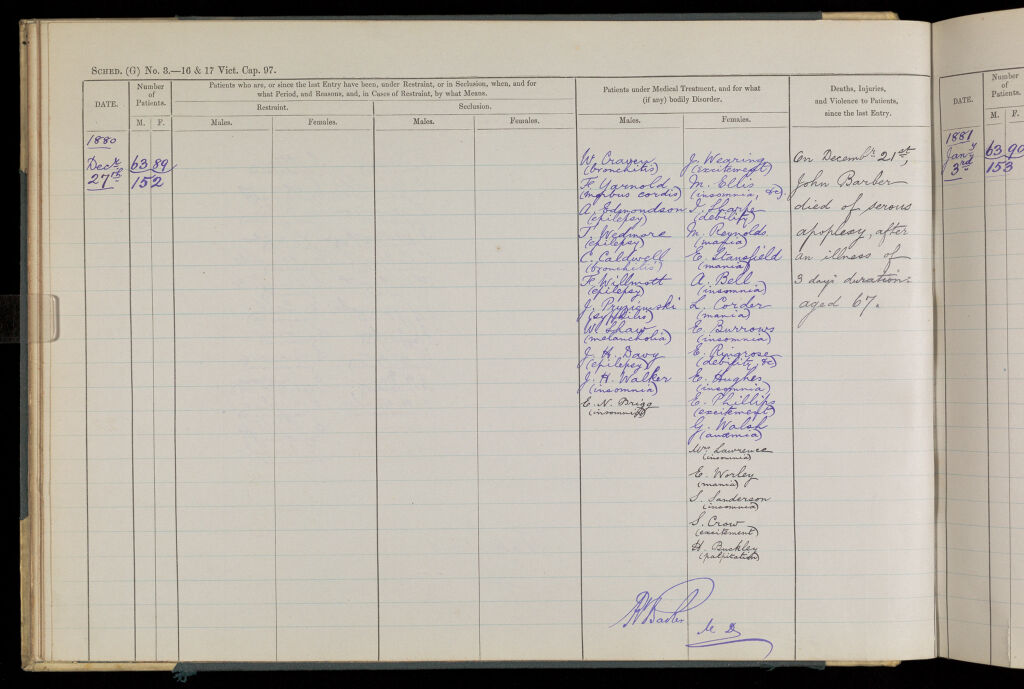 SCHED. (G) No. 3.—16 & 17 Vict. Cap. 97.
DATE.
Number
of
Patients.
M. F.
Patients who are, or since the last Entry have been, under Restraint, or in Seclusion, when, and for
what Period, and Reasons, and, in Cases of Restraint, by what Means.
Restraint.
Seclusion.
Males.
Females.
Males.
Females.
Patients under Medical Treatment, and for what
(if any) bodily Disorder.
Males.
Females.
Deaths, Injuries,
and Violence to Patients,
since the last Entry.
1880
Decr
27th
63 89
152
W. Craven
(bronchitis)
F. Yarnold
(morbus cordis)
A. Edmondson
(epilepsy)
T. Wedmore
(epilepsy)
C. Caldwell
(bronchitis)
F. Willmott
(epilepsy)
(syphilis)
W. Shaw
(melancholia)
J. H. Davy
(epilepsy)
J. H. Walker
(insomnia)
E. N. Brigg
(insomnia)
J. Wearing
(excitement)
M. Ellis
(insomnia, &c)
I. Sharpe
(debility)
M. Reynolds
(mania)
E. Stansfield
(mania)
A. Bell
(insomnia)
L. Corder
(mania)
E. Burrows
(insomnia)
E. Ringrose
(debility, &c)
E. Hughes
(insomnia)
E. Phillips
(excitement)
G. Walsh
(anæmia)
Mrs Lawrence
(insomnia)
E. Worley
(mania)
S. Sanderson
(insomnia)
S. Crow
(excitement)
H. Buckley
(palpitation)
On Decembr 21st,
John Barber
died of serous
apoplexy, after
an illness of
3 days duration.
aged 67.
M D
DATE.
Number
of
Patients.
M. F.
1881
Jany
3rd
63 90
153